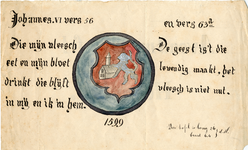 Johannes. VI vers 56
en vers 63ᵃ
Die mijn vleesch
eet en mijn bloet
drinkt die blijft
in mÿ, en ik in hem.
De geest is die
levendig maakt. het
vleesch is niet nut.